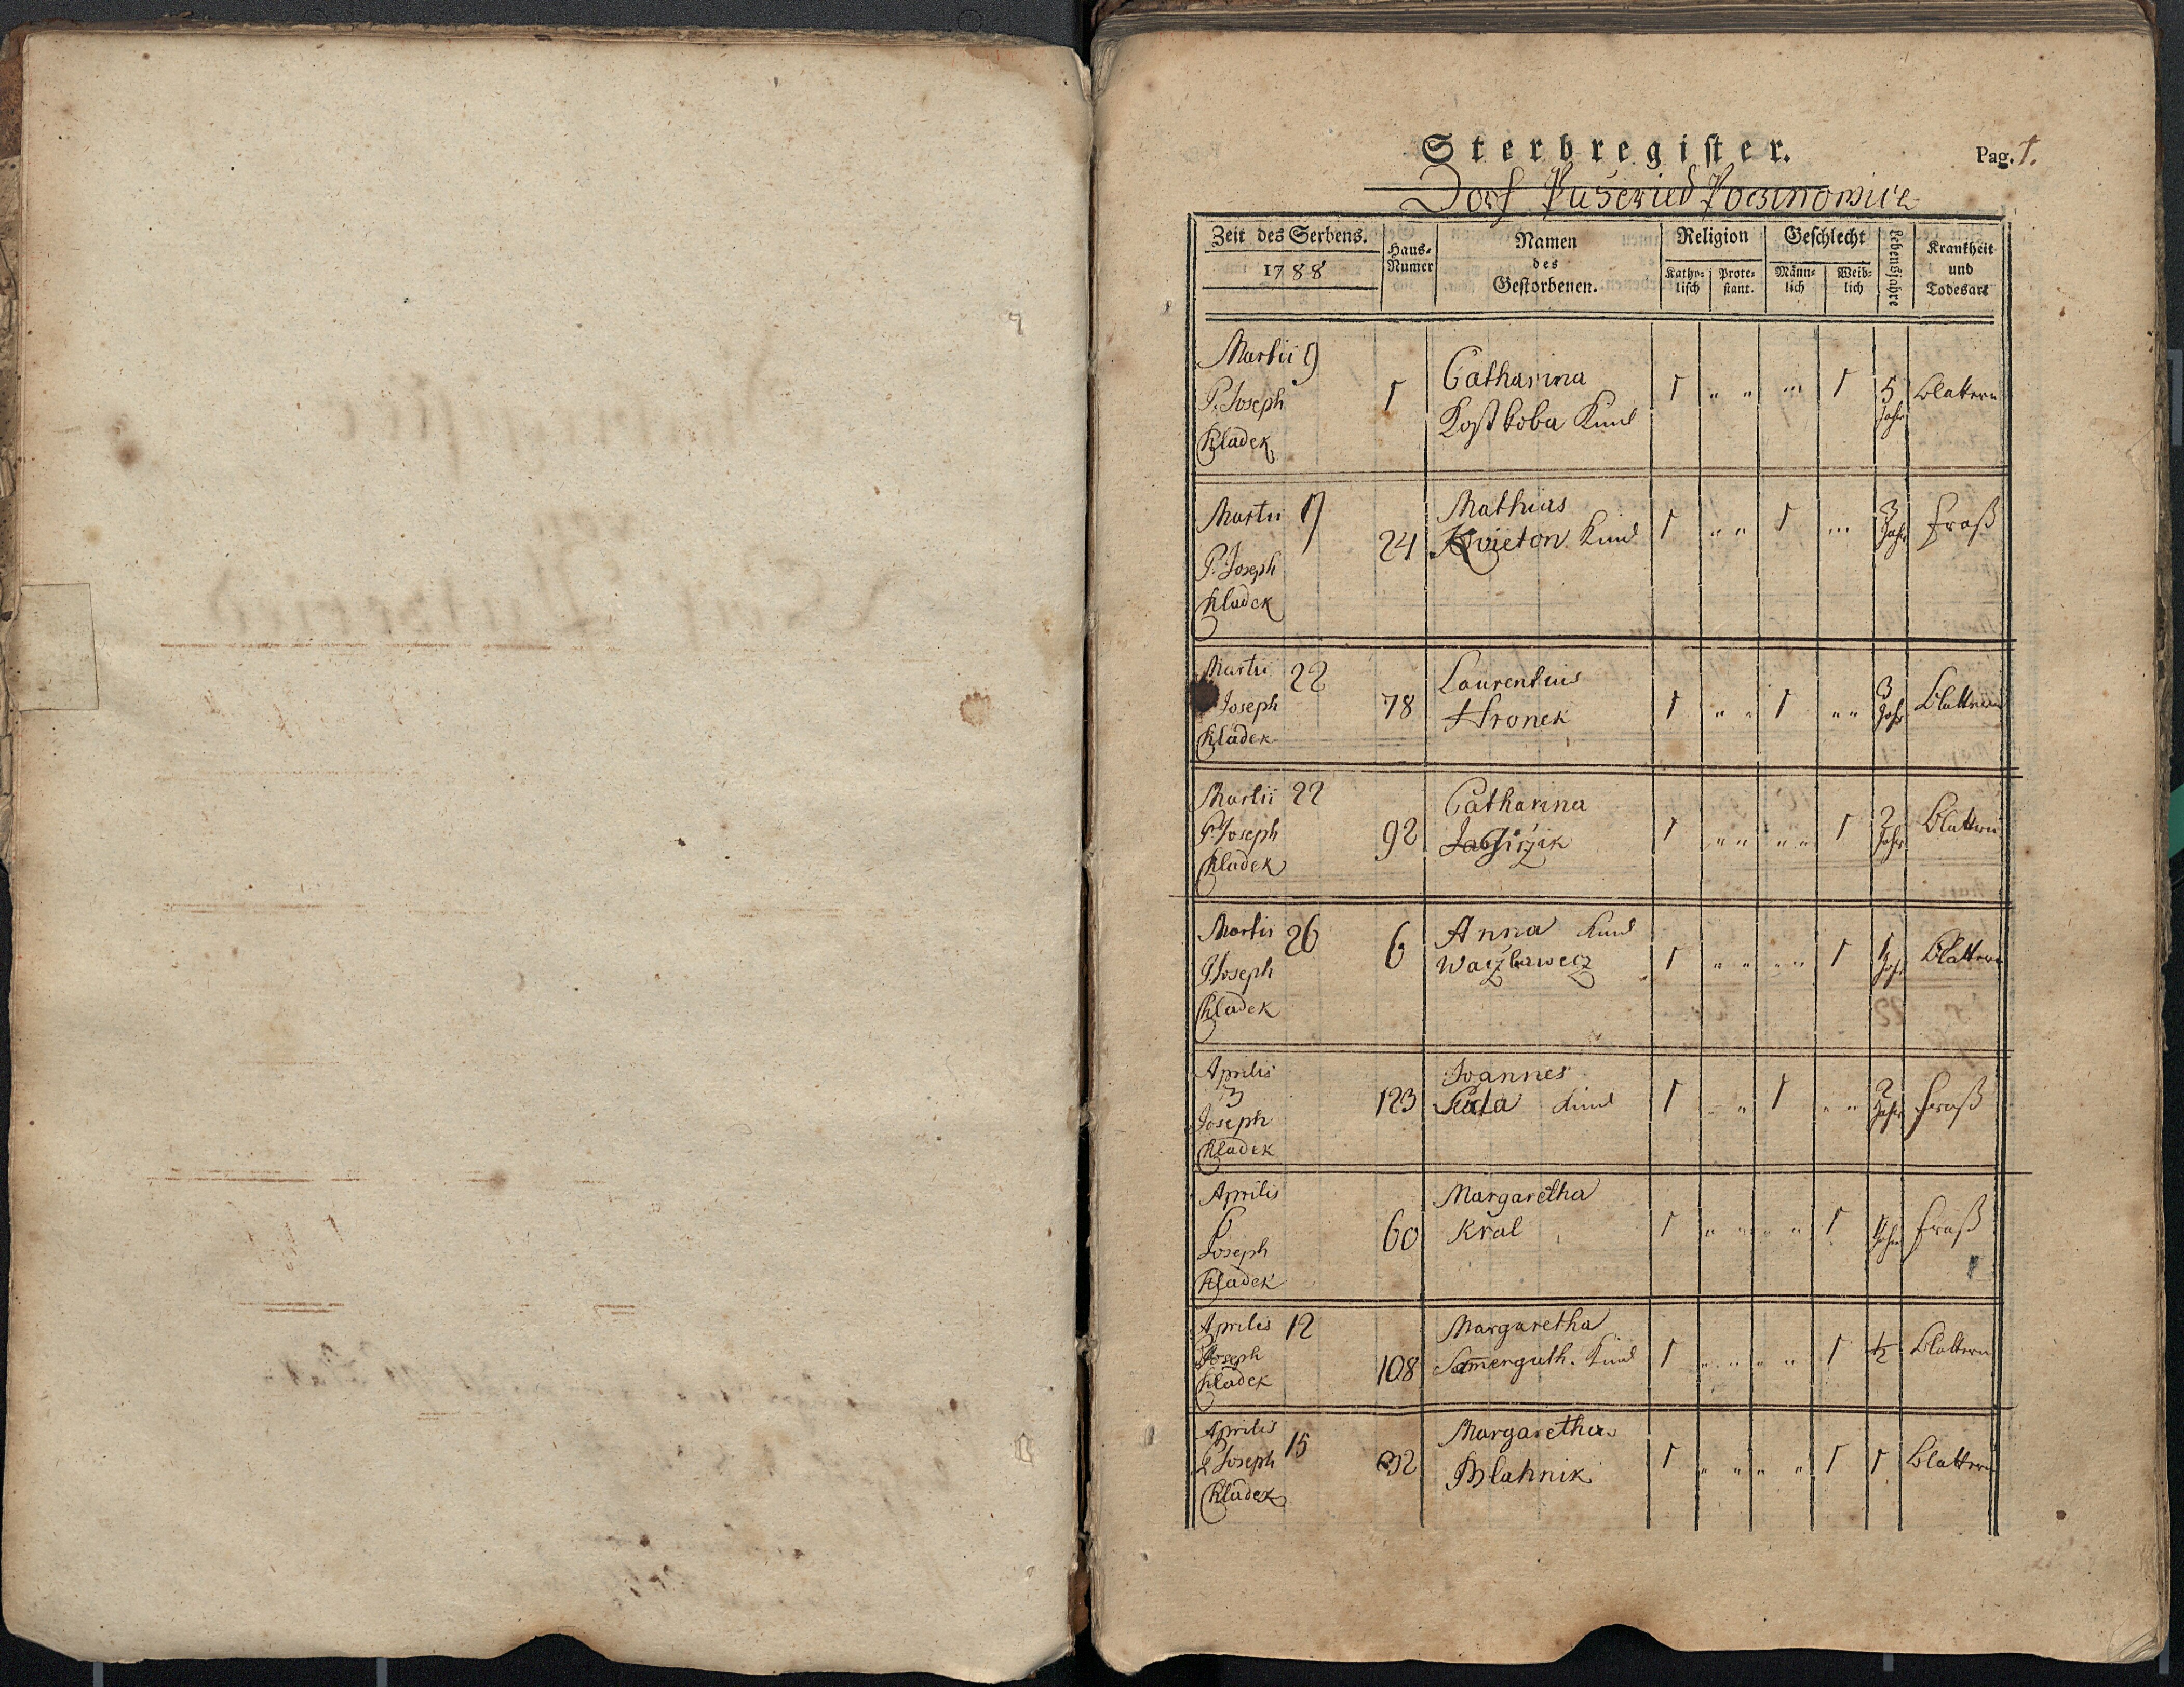 Sterbregister.
Pag. 1.
Dorf
Zeit des Serbens.
1788
Haus-
Numer
Namen
des
Gestorbenen.
Religion
Katho-
lisch
Prote-
stant.
Geschlecht
Männ-
lich
Weib-
lich
Lebensjahre
Krankheit
und
Todesart
Martii 9
P. Joseph
Kladek
1
Catharina
Kind
1 " " " 1
5
Jahr
Blattern
Martii 17
P. Joseph
Kladek
24
Mathias
Kvieton Kind
1 " " 1 "
3
Jahr
Fraß
Martii 22
Joseph
Kladek
78
Laurentius
Hronek
1 " " 1 " "
3
Jahr
Blattern
Martii 22
P. Joseph
Kladek
92
Catharina
1 " " " " 1
2
Jahr
Blattern
Martii 26
P. Joseph
Kladek
6
Anna Kind
Waczlawecz
1 " " " " 1
1
Jahr
Blattern
Aprilis
3
Joseph
Kladek
123
Joannes
Kind
1 " " 1 " "
2
Jahr
Fraß
Aprilis
6
Joseph
Kladek
60
Margaretha
Kral
1 " " " " 1
Jahr
Fraß
Aprilis 12
Joseph
Kladek
108
Margaretha
Kind
1 " " " " 1
1/2
Blattern
Aprilis
P. Joseph 15
Kladek
32
Margaretha
Blahnik
1 " " " " 1
1
Blattern